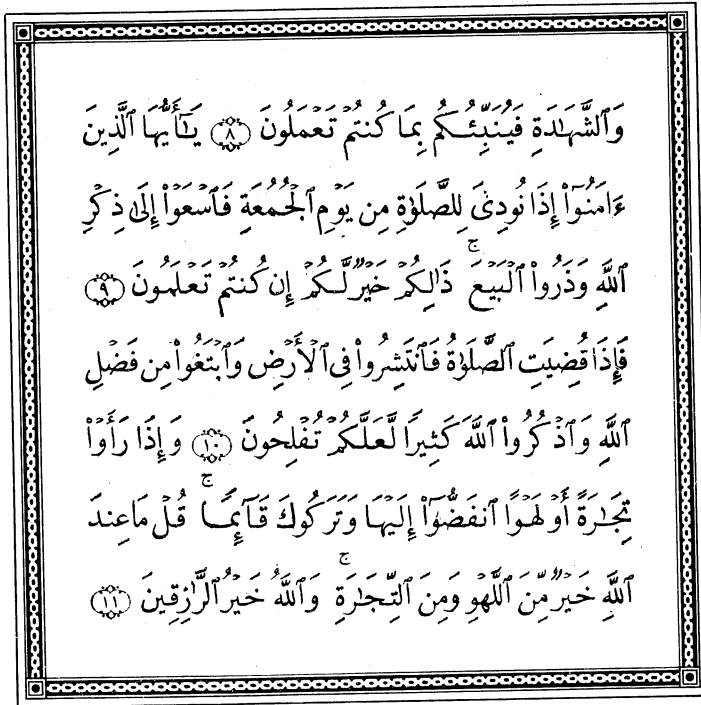 وَٱلشَّهَٰدَةِ فَيُنَبِّئُكُم بِمَا كُنتُمْ تَعْمَلُونَ ٨ يَٰٓأَيُّهَا ٱلَّذِينَ
ءَامَنُوٓا۟ إِذَا نُودِىَ لِلصَّلَوٰةِ مِن يَوْمِ ٱلْجُمُعَةِ فَٱسْعَوْا۟ إِلَىٰ ذِكْرِ
ٱللَّهِ وَذَرُوا۟ ٱلْبَيْعَ ۚ ذَٰلِكُمْ خَيْرٌ لَّكُمْ إِن كُنتُمْ تَعْلَمُونَ ٩
فَإِذَا قُضِيَتِ ٱلصَّلَوٰةُ فَٱنتَشِرُوا۟ فِى ٱلْأَرْضِ وَٱبْتَغُوا۟ مِن فَضْلِ
ٱللَّهِ وَٱذْكُرُوا۟ ٱللَّهَ كَثِيرًا لَّعَلَّكُمْ تُفْلِحُونَ ١٠ وَإِذَا رَأَوْا۟
تِجَٰرَةً أَوْ لَهْوًا ٱنفَضُّوٓا۟ إِلَيْهَا وَتَرَكُوكَ قَآئِمًا ۚ قُلْ مَا عِندَ
ٱللَّهِ خَيْرٌ مِّنَ ٱللَّهْوِ وَمِنَ ٱلتِّجَٰرَةِ ۚ وَٱللَّهُ خَيْرُ ٱلرَّٰزِقِينَ ١١